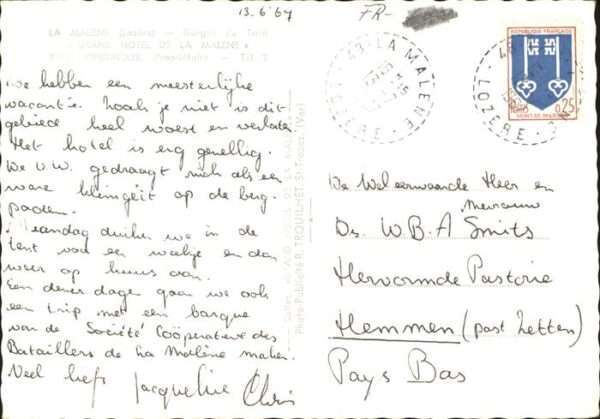 13.6.67
FR-
LA MALÈNE (Lozère) - Gorges du Tarn
GRAND HOTEL DE LA MALÈNE
Tél. 2
We hebben een meesterlijke
vacantie. Zoals je niet is dit
gebied heel woest en verlaten
Het hotel is erg gezellig.
De V.W. gedraagt zich als een
ware kleingeit op de berg-
paden.
Maandag duiken we in de
tent voor een weekje en dan
weer op huus aan.
Een dezer dagen gaan we ook
een trip met een barque
van de Société Coöperative des
Bataillers de La Malène maken.
Veel liefs Jacqueline Chris
Photo-Publicité R. TROUILHET, St-Tropez (Var)
48 LA MALÈNE
LOZÈRE
REPUBLIQUE FRANÇAISE
0,25
MONT-DE-MARSAN
48
LOZÈRE
De Weleerwaarde Heer en
Mevrouw
Ds. W.B.A. Smits
Hervormde Pastorie
Hemmen (post Zetten)
Pays Bas